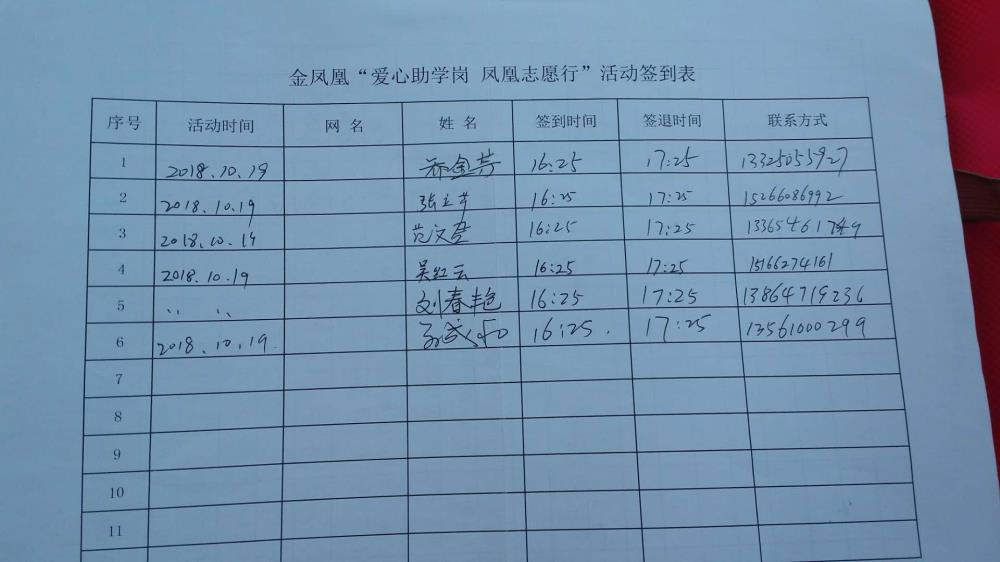 金凤凰“爱心助学岗 凤凰志愿行”活动签到表
序号 活动时间 网 名 姓 名 签到时间 签退时间 联系方式
1 2018.10.19 16:25 17:25 13325055927
2 2018.10.19 16:25 17:25 15266086992
3 2018.10.19 范文奎 16:25 17:25
4 2018.10.19 吴红云 16:25 17:25 15166274161
5 〃 〃 刘春艳 16:25 17:25 13864719236
6 2018.10.19. 16:25. 17:25 13561000299
7
8
9
10
11